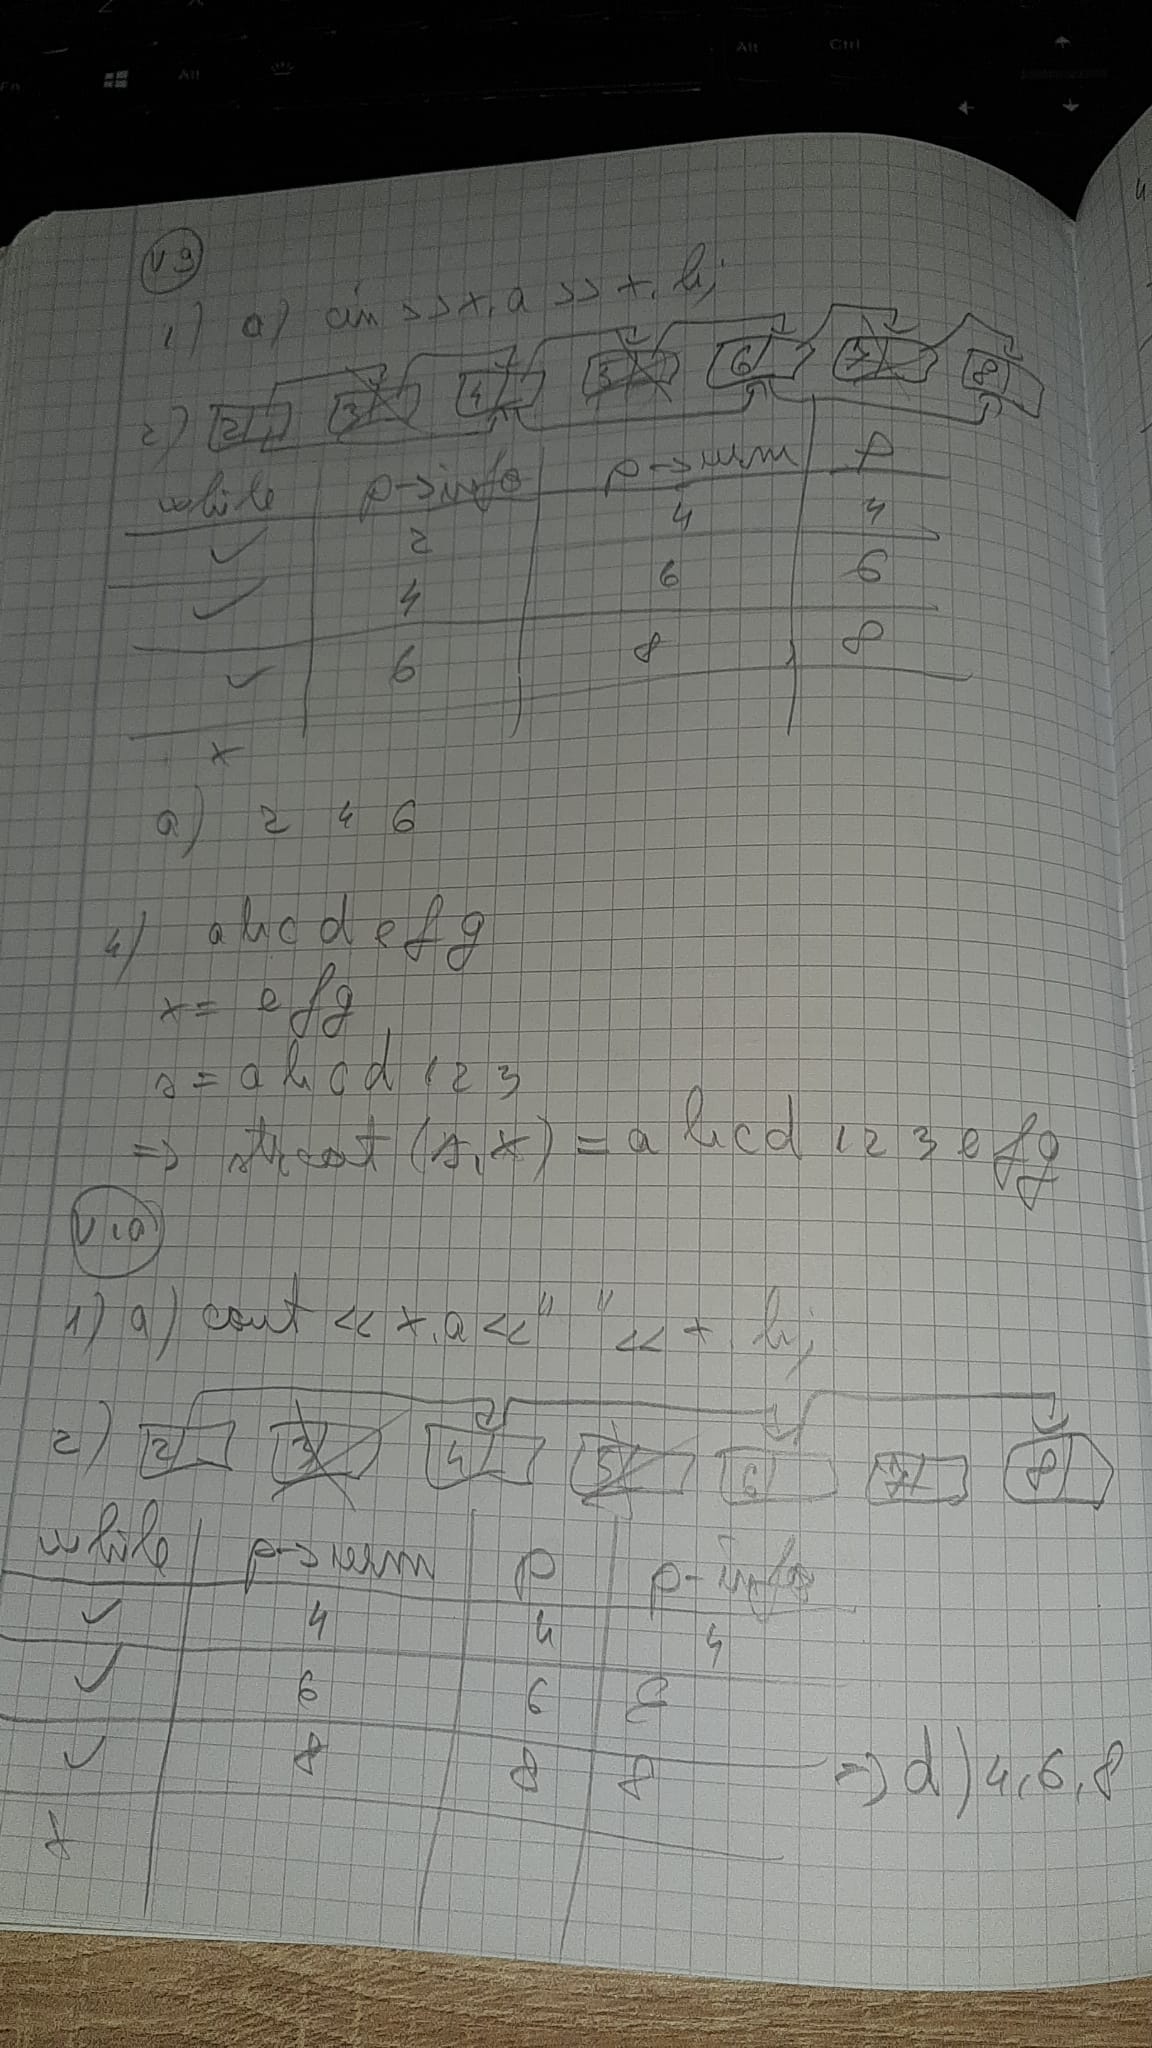 Fn Alt Alt Ctrl
V9
1) a) cin >> x.a >> x.b;
2) 2 3 4 5 6 7 8
while p->info p->urm p
✓ 2 4 4
✓ 4 6 6
✓ 6 8 8
x
a) 2 4 6
4) abcdefg
x = efg
s = abcd123
=> strcat(s,x) = abcd123efg
V10
1) a) cout << x.a << " " << x.b;
2) 2 3 4 5 6 7 8
while p->urm p p-info
✓ 4 4 4
✓ 6 6 6
✓ 8 8 8 => d) 4,6,8
x